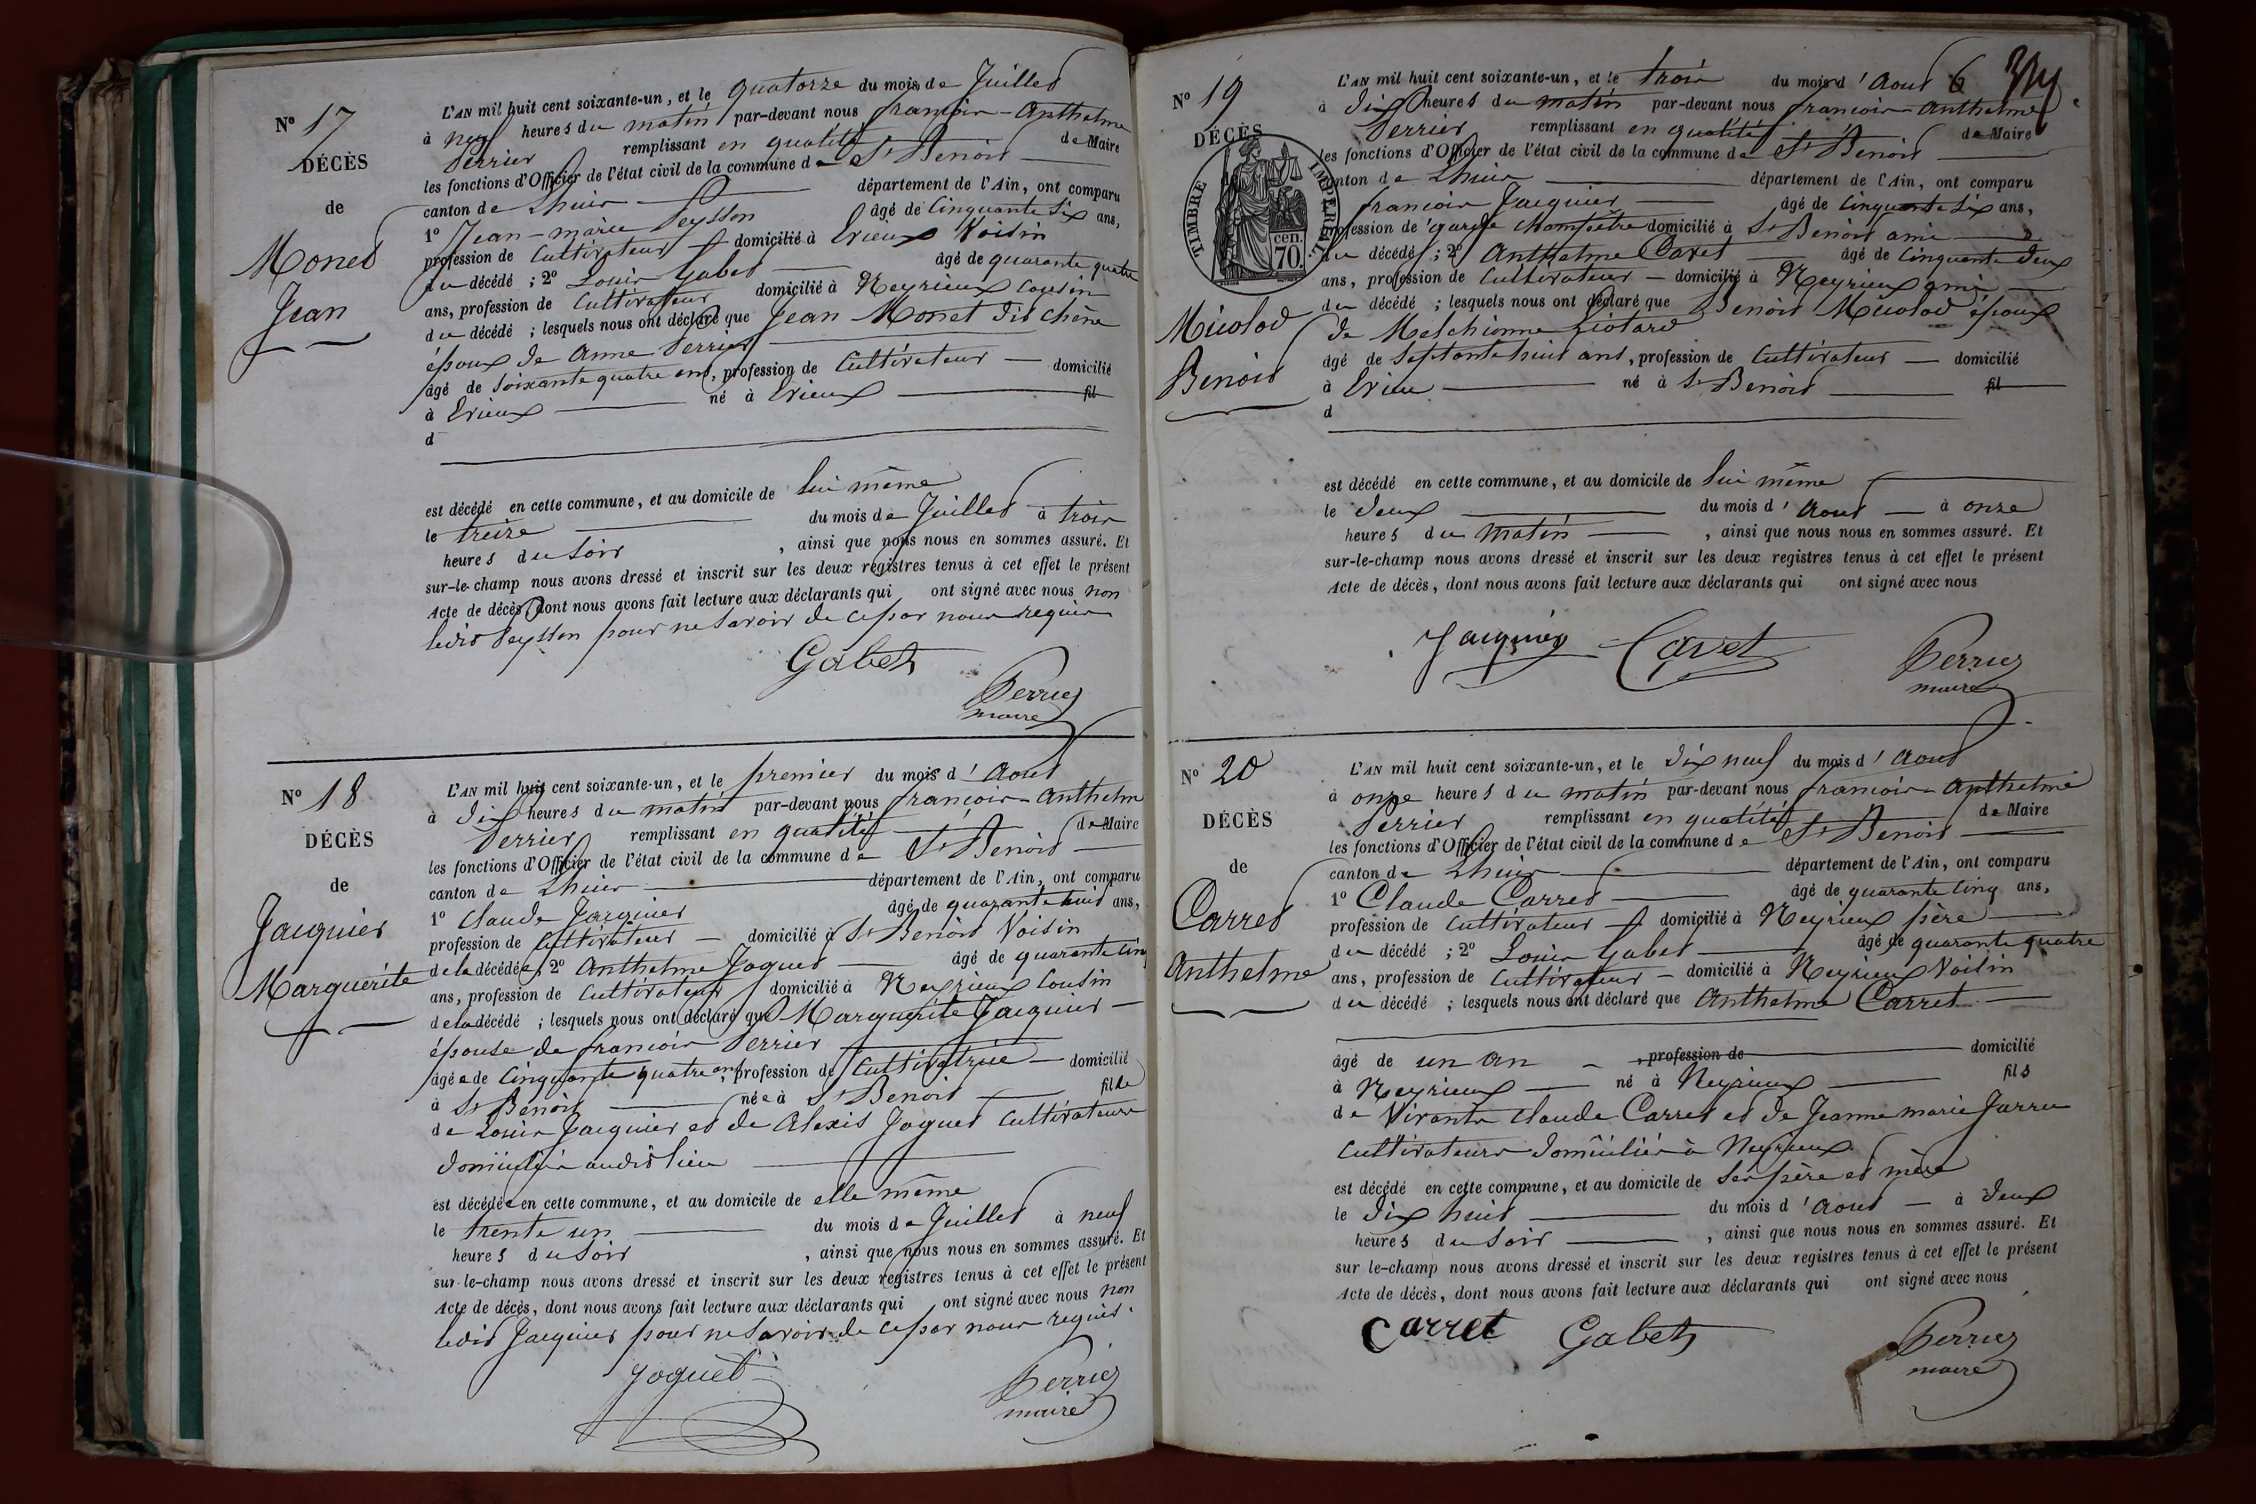 N° 17
DÉCÈS
de
Monet
Jean
L'AN mil huit cent soixante-un, et le quatorze du mois de Juillet
à neuf heures du matin par-devant nous françois-Anthelme
Perrier remplissant en qualité de Maire
les fonctions d'Officier de l'état civil de la commune de St Benoit
canton de Lhuis département de l'Ain, ont comparu
1° Jean-marie Peysson âgé de Cinquante Six ans,
profession de Cultivateur domicilié à Evieux Voisin
du décédé ; 2° Louis Gabet âgé de quarante quatre
ans, profession de Cultivateur domicilié à Neyrieux Cousin
du décédé ; lesquels nous ont déclaré que Jean Monet dit Chêne
époux de Anne Perrier
âgé de Soixante quatre ans, profession de Cultivateur domicilié
à Evieux né à Evieux fil
d
est décédé en cette commune, et au domicile de lui même
le treize du mois de Juillet à trois
heures du Soir , ainsi que nous nous en sommes assuré. Et
sur-le-champ nous avons dressé et inscrit sur les deux registres tenus à cet effet le présent
Acte de décès, dont nous avons fait lecture aux déclarants qui ont signé avec nous non
ledit Peysson pour ne Savoir de ce par nous requis
Gabet
Perrier
maire
N° 18
DÉCÈS
de
Jacquier
Marguérite
L'AN mil huit cent soixante-un, et le premier du mois d'Aout
à Dix heures du matin par-devant nous françois-Anthelm
Perrier remplissant en qualité de Maire
les fonctions d'Officier de l'état civil de la commune de St Benoit
canton de Lhuis département de l'Ain, ont comparu
1° Claude Jacquier âgé de quarante huit ans,
profession de Cultivateur domicilié à St Benoit Voisin
de la décédée ; 2° Anthelme Joguet âgé de quarante cinq
ans, profession de Cultivateur domicilié à Neyrieux Cousin
de la décédé ; lesquels nous ont déclaré que Marguérite Jacquier
épouse de françois Perrier
âgée de Cinquante quatre ans, profession de Cultivatrice domicilié
à St Benoit née à St Benoit fille
de Louis Jacquier et de Alexis Joguet Cultivateurs
domiciliés audit lieu
est décédée en cette commune, et au domicile de elle même
le trente un du mois de Juillet à neuf
heures du Soir , ainsi que nous nous en sommes assuré. Et
sur-le-champ nous avons dressé et inscrit sur les deux registres tenus à cet effet le présent
Acte de décès, dont nous avons fait lecture aux déclarants qui ont signé avec nous non
ledit Jacquier pour ne Savoir de ce par nous requis.
Joguet
Perrier
maire
N° 19
DÉCÈS
TIMBRE IMPÉRIAL
70 cen.
Micolod
Benoit
L'AN mil huit cent soixante-un, et le trois du mois d'Aout 6
à Dix heures du matin par-devant nous françois-Anthelme
Perrier remplissant en qualité de Maire
les fonctions d'Officier de l'état civil de la commune de St Benoit
canton de Lhuis département de l'Ain, ont comparu
françois Jacquier âgé de Cinquante Six ans,
profession de garde Champêtre domicilié à St Benoit ami
du décédé ; 2° Anthelme Cavet âgé de Cinquante Deux
ans, profession de Cultivateur domicilié à Neyrieux ami
du décédé ; lesquels nous ont déclaré que Benoit Micolod époux
de Melchionne Liotard
âgé de Septante huit ans, profession de Cultivateur domicilié
à Evieu né à St Benoit fil
d
est décédé en cette commune, et au domicile de lui même
le Deux du mois d'Aout à onze
heures du matin , ainsi que nous nous en sommes assuré. Et
sur-le-champ nous avons dressé et inscrit sur les deux registres tenus à cet effet le présent
Acte de décès, dont nous avons fait lecture aux déclarants qui ont signé avec nous
Jacquier Cavet
Perrier
maire
N° 20
DÉCÈS
de
Carret
Anthelme
L'AN mil huit cent soixante-un, et le Dix neuf du mois d'Aout
à onze heures du matin par-devant nous françois-Anthelme
Perrier remplissant en qualité de Maire
les fonctions d'Officier de l'état civil de la commune de St Benoit
canton de Lhuis département de l'Ain, ont comparu
1° Claude Carret âgé de quarante Cinq ans,
profession de Cultivateur domicilié à Neyrieux père
du décédé ; 2° Louis Gabet âgé de quarante quatre
ans, profession de Cultivateur domicilié à Neyrieux Voisin
du décédé ; lesquels nous ont déclaré que Anthelme Carret
âgé de un an , profession de domicilié
à Neyrieux né à Neyrieux fils
de Vivants Claude Carret et de Jeanne marie
Cultivateurs domiciliés à Neyrieux
est décédé en cette commune, et au domicile de Ses père et mère
le Dix huit du mois d'Aout à Deux
heures du Soir , ainsi que nous nous en sommes assuré. Et
sur le-champ nous avons dressé et inscrit sur les deux registres tenus à cet effet le présent
Acte de décès, dont nous avons fait lecture aux déclarants qui ont signé avec nous
Carret Gabet
Perrier
maire